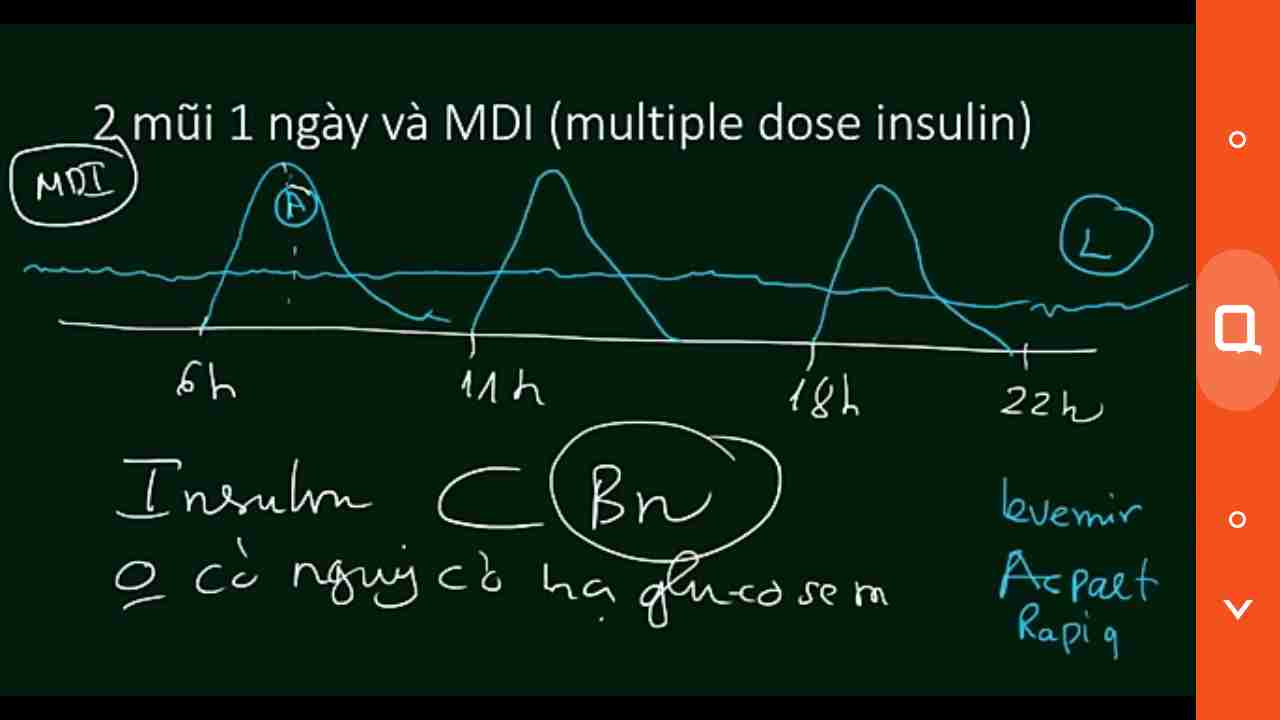 2 mũi 1 ngày và MDI (multiple dose insulin)
MDI
A
L
6h 11h 18h 22h
Insulin ⊂ Bn
O có nguy cơ hạ glucose m
levemir
Acpart
Rapiq